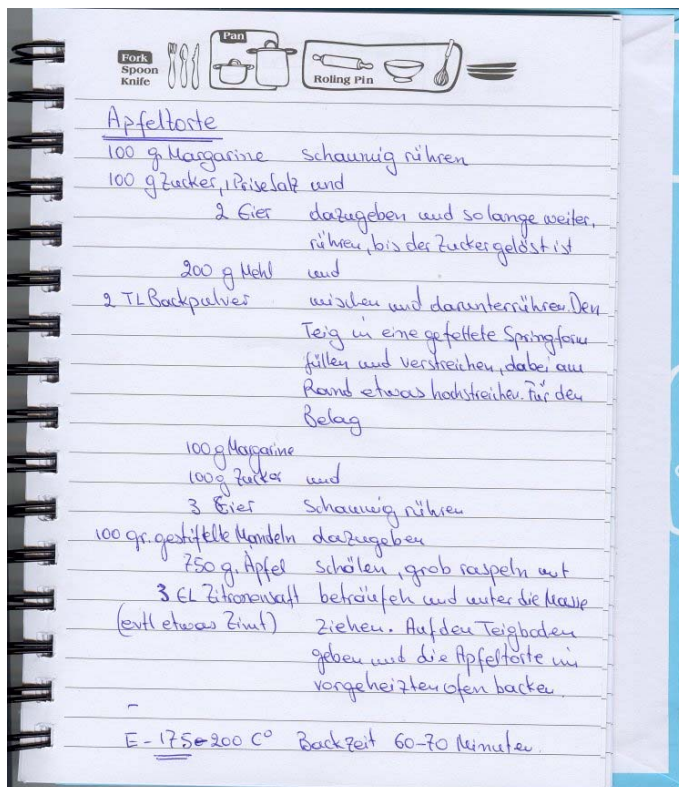 Pan
Fork
Spoon
Knife
Roling Pin
Apfeltorte
100 g Margarine schaumig rühren
100 g Zucker, 1 Prise Salz und
2 Eier dazugeben und solange weiter,
rühren, bis der Zucker gelöst ist
200 g Mehl und
2 TL Backpulver mischen und darunterrühren. Den
Teig in eine gefettete Springform
füllen und verstreichen, dabei am
Rand etwas hochstreichen. Für den
Belag
100 g Margarine
100 g Zucker und
3 Eier Schaumig rühren
100 gr. gestiftelte Mandeln dazugeben
750 g. Äpfel schälen, grob raspeln mit
3 EL Zitronensaft beträufeln und unter die Masse
(evtl etwas Zimt) ziehen. Auf den Teigboden
geben und die Apfeltorte im
vorgeheizten Ofen backen.
E - 175-200 C° Backzeit 60-70 Minuten.